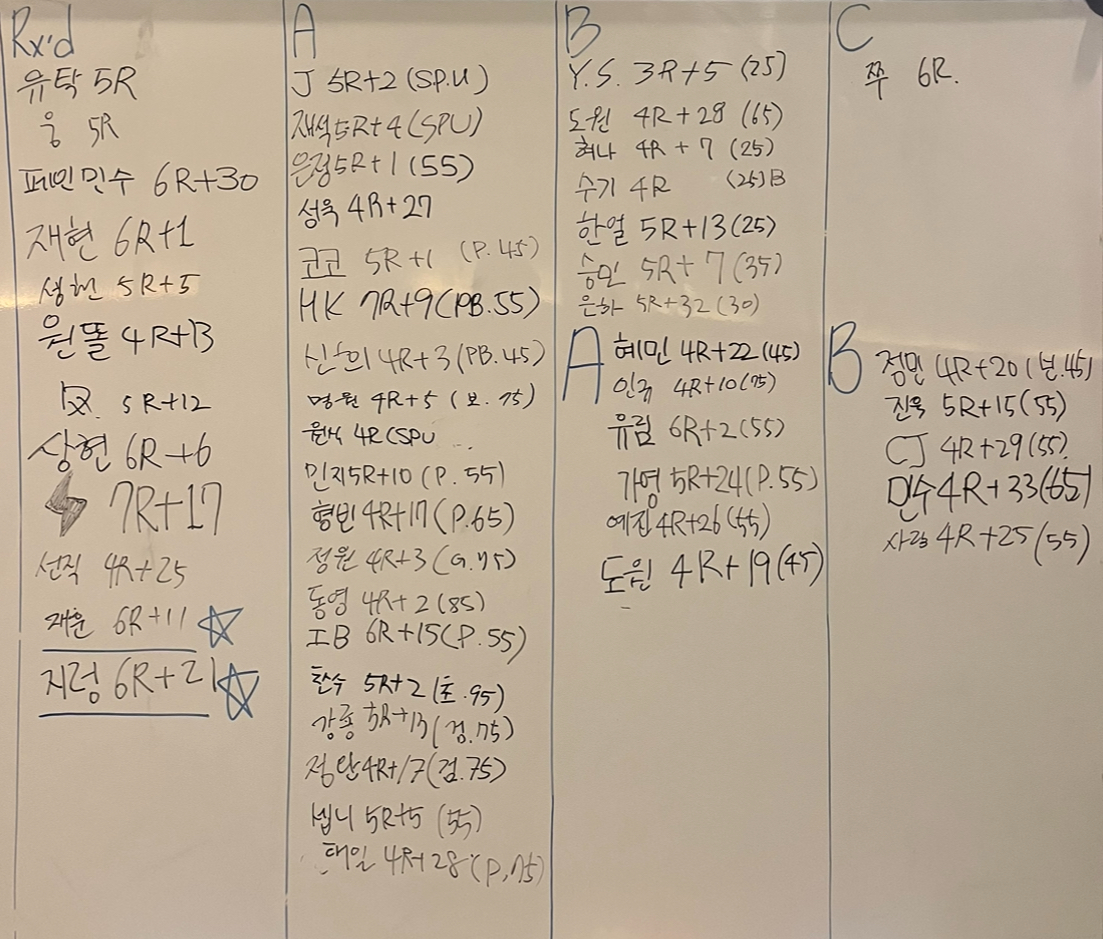 Rx'd
유탁 5R
웅 5R
페인민수 6R+30
재현 6R+1
성현 5R+5
원똘 4R+13
5R+12
상현 6R+6
7R+17
선직 4R+25
재운 6R+11
지렁 6R+21
A
J 5R+2 (SP.U)
재석 5R+4 (SPU)
은정 5R+1 (55)
성욱 4R+27
코코 5R+1 (P.45)
HK 7R+9 (PB.55)
4R+3 (PB.45)
명원 4R+5 (보.75)
원식 4R (SPU
민지 5R+10 (P.55)
형빈 4R+17 (P.65)
정원 4R+3 (G.75)
동영 4R+2 (85)
IB 6R+15 (P.55)
찬수 5R+2 (초.95)
강훈 5R+13 (검.75)
정안 4R+17 (검.75)
셉니 5R+5 (55)
태일 4R+28 (P.75)
B
Y.S. 3R+5 (25)
도원 4R+28 (65)
혜나 4R+7 (25)
수기 4R (25)B
한얼 5R+13 (25)
승민 5R+7 (35)
은하 5R+32 (30)
A
혜민 4R+22 (45)
인규 4R+10 (75)
유림 6R+2 (55)
가영 5R+24 (P.55)
예진 4R+26 (55)
도원 4R+19 (45)
C
쭈 6R.
B
정민 4R+20 (보.45)
진욱 5R+15 (55)
CJ 4R+29 (55)
민수 4R+33 (65)
사랑 4R+25 (55)